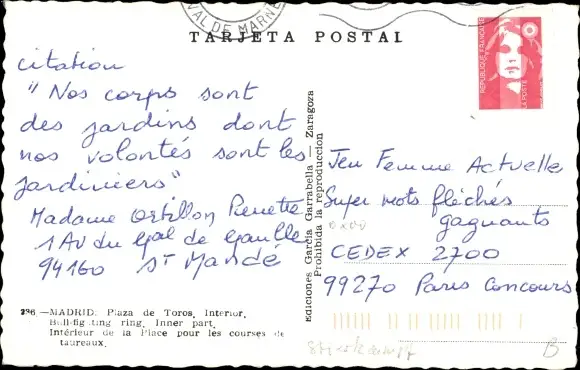 VAL DE MARNE
TARJETA POSTAL
REPUBLIQUE FRANÇAISE
LA POSTE
citation
"Nos corps sont
des jardins dont
nos volontés sont les
jardiniers"
Madame Ortillon Pierrette
1 AV du Gal de Gaulle
94160 ST Mandé
Ediciones García Garrabella - Zaragoza
Prohibida la reproduccion
Jeu Femme Actuelle
Super mots fléchés
gagnants
CEDEX 2700
99270 Paris Concours
236.—MADRID: Plaza de Toros, Interior.
Bull-fighting ring. Inner part.
Intérieur de la Place pour les courses de
taureaux.
B